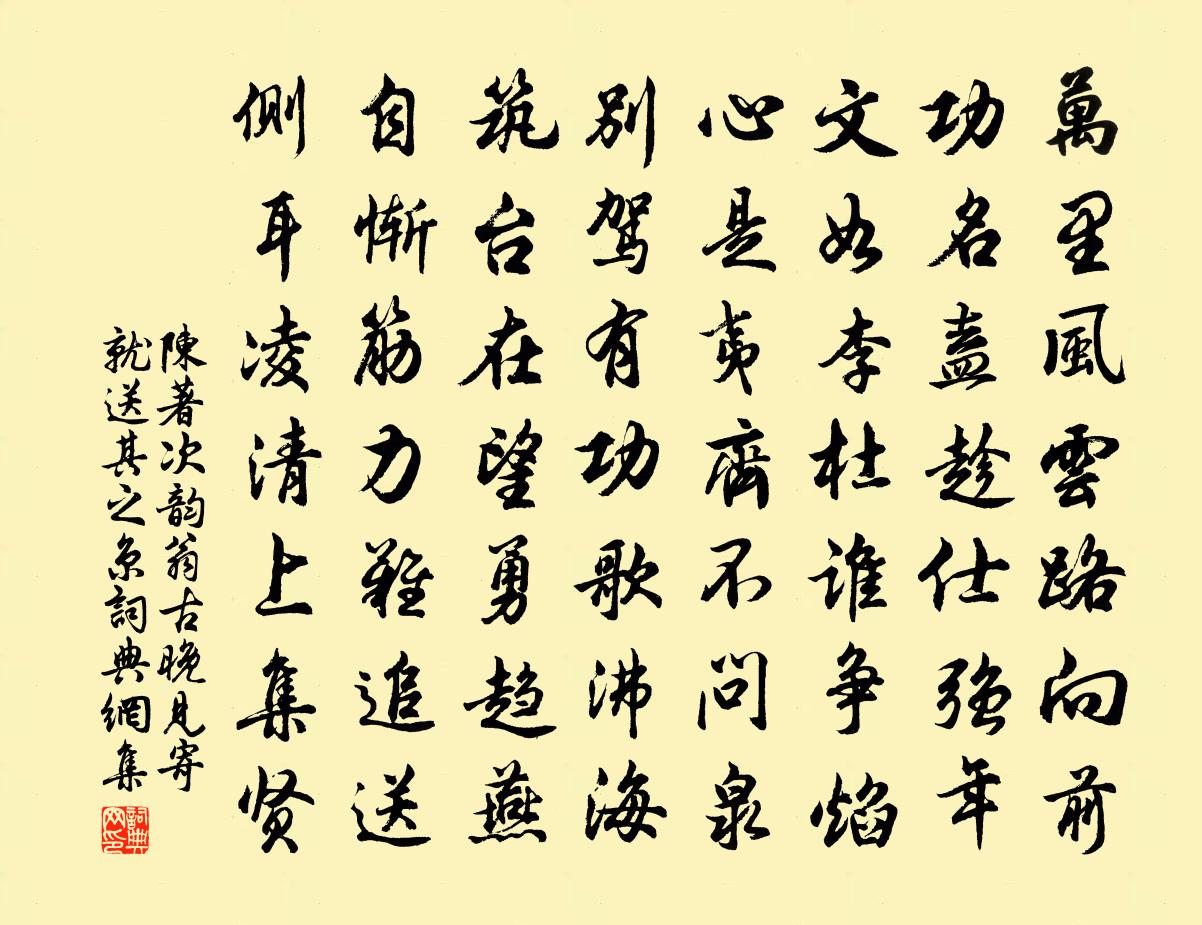 萬里風雲路向前
功名盍趁仕强年
文如李杜誰爭焰
心是夷齊不問泉
別駕有功歌沸海
筑台在望勇趨燕
自慚筋力難追送
側耳凌清上集贤
陳著次韵翁古晚見寄
就送其之京詞典網集
詞典
网印